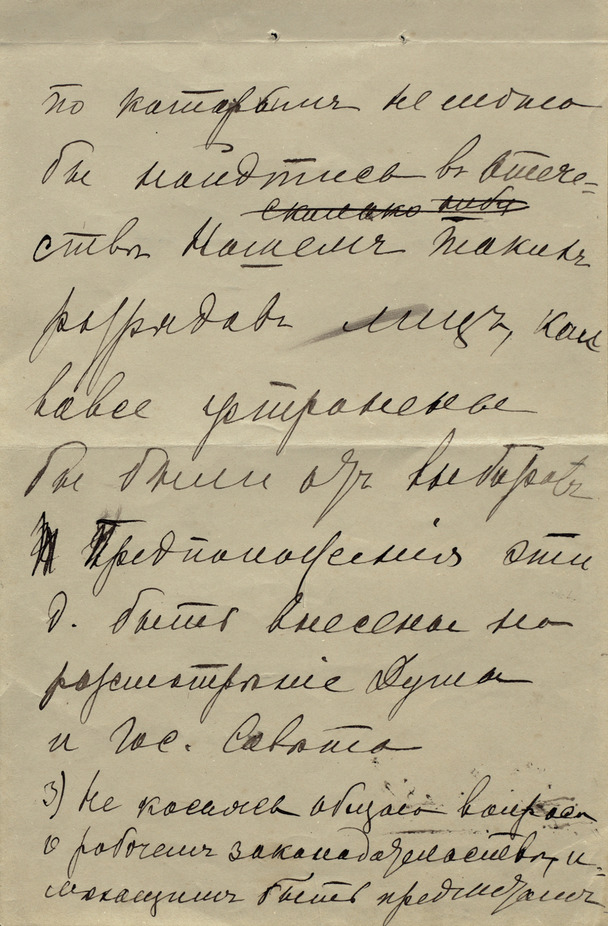 по которымъ не могло
бы найдтись въ Отече=
сколько нибу
ствѣ Нашемъ такихъ
разрядовъ лицъ, кои
вовсе устранены
бы были отъ выборовъ
Предположенія эти
д. быть внесены на
разсмотрѣніе Думы
и Гос. Совѣта
3) Не касаясь общаго вопроса
о рабочемъ законодательствѣ, и-
могущимъ быть предметомъ